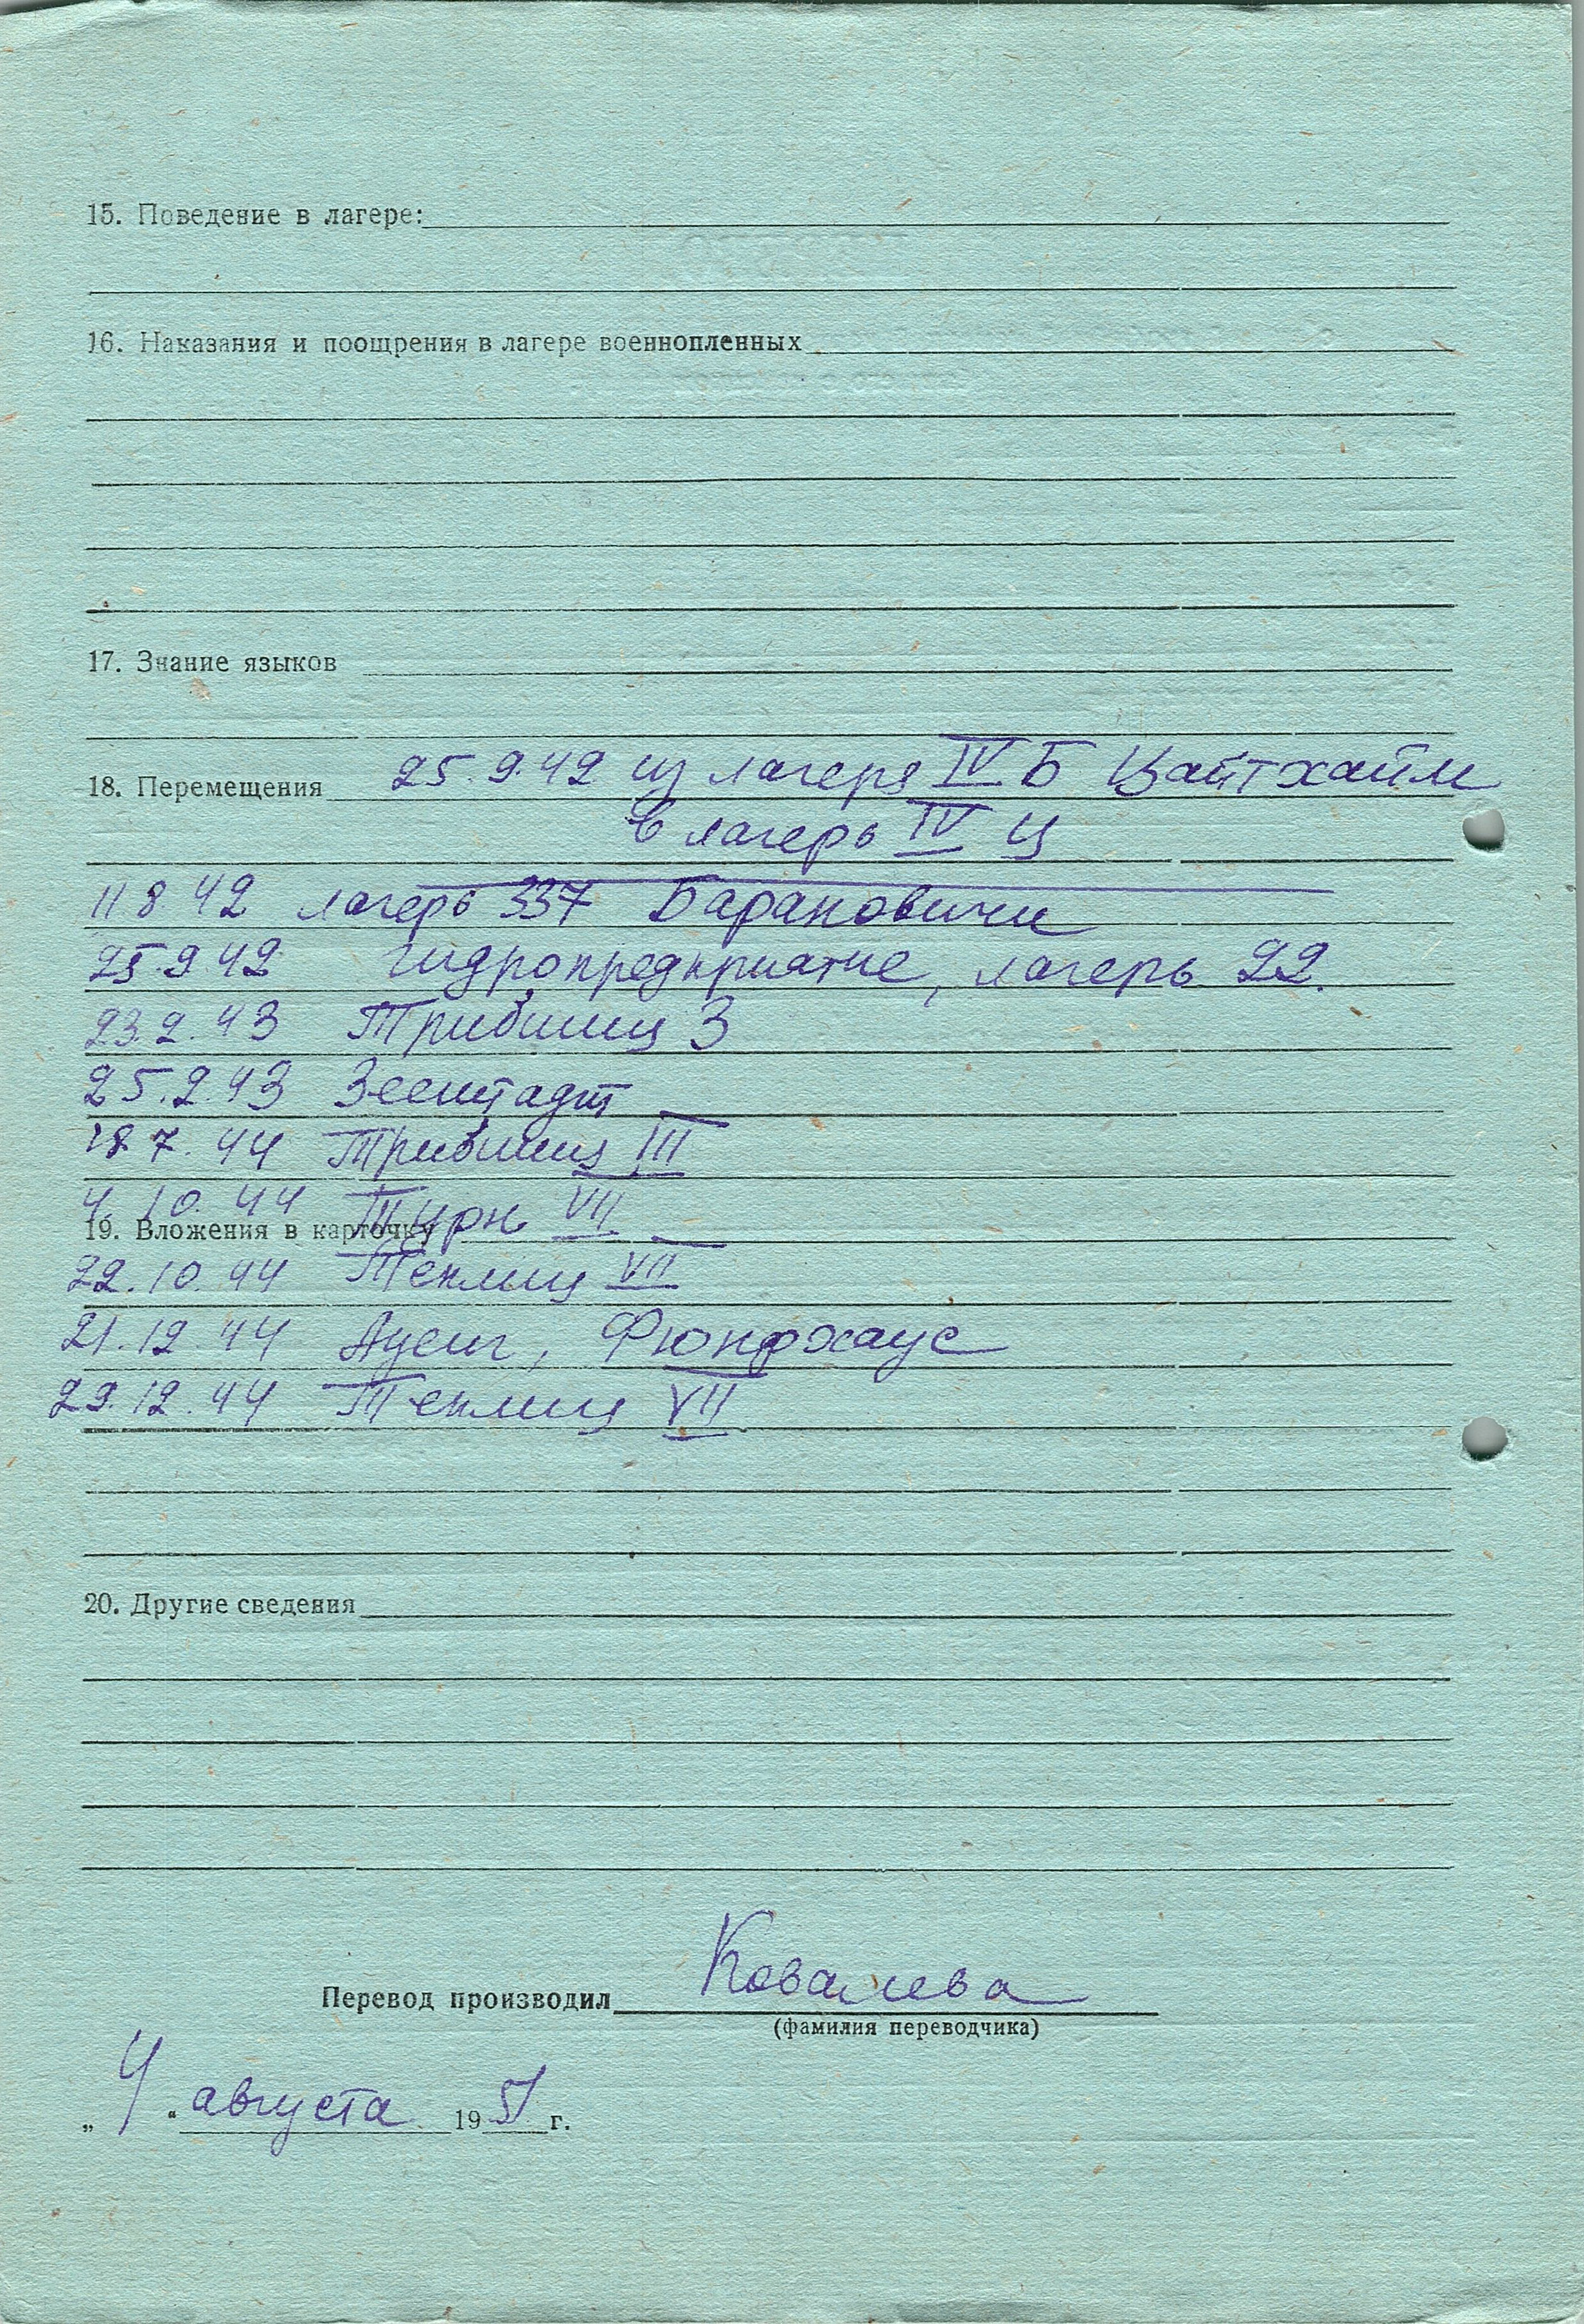 15. Поведение в лагере:
16. Наказания и поощрения в лагере военнопленных
17. Знание языков
18. Перемещения 25.9.42 из лагеря IV Б Цайтхайм
в лагерь IV Ц
11.8 42 лагерь 337 Барановичи
25.9.42 гидропредприятие, лагерь 22.
23.2.43 Трибшиц 3
25.2.43 Зеештадт
28.7.44 Трибшиц III
4.10.44 Турн VII
19. Вложения в карточку
22.10.44 Теплиц VII
21.12.44 Ауссиг, Фюнфхаус
29.12.44 Теплиц VII
20. Другие сведения
Перевод производил Ковалева
(фамилия переводчика)
„ 4 “ августа 1951 г.